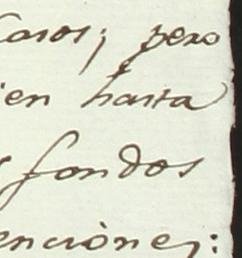 Casos; pero
ien hasta
fondos
enciones: